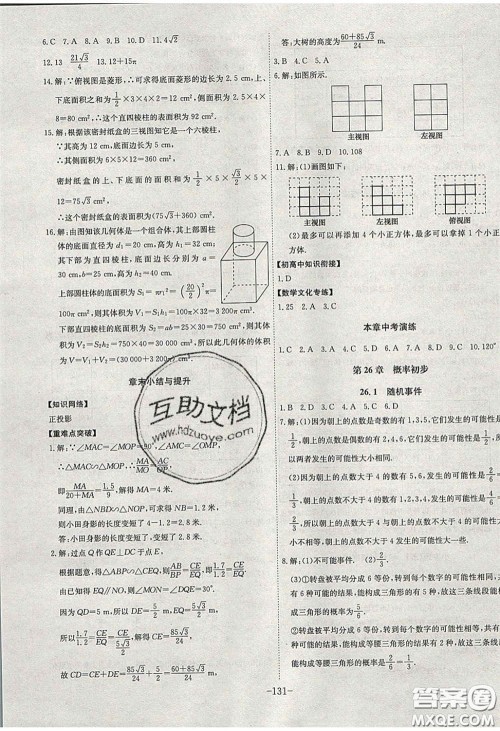 6.C 7.A 8.A 9.B 10.D 11.4√2
12.13 21√3/4 13.12+15π
14.解:∵俯视图是菱形,∴可求得底面菱形的边长为 2.5 cm,上、
下底面面积之和为 1/2×3×4×2=12 cm²,侧面积为 2.5×4×2
8=80 cm²,∴这个直四棱柱的表面积为 92 cm².
15.解:根据该密封纸盒的三视图知它是一个六棱柱,
∵其高为 12 cm,底面边长为 5 cm,
∴其侧面积为 6×5×12=360 cm²,
密封纸盒的上、下底面的面积和为 1/2×5×√3/2×5×
12=75√3 cm²,
∴其表面积为(75√3+360) cm².
16.解:由图知该几何体是一个组合体,其上部圆柱的
底面直径为 d₁=20 cm,高为 h₁=32 cm;
其下部直四棱柱,底面长为 d₂=30 cm,宽为 d₃=
25 cm,高为 h₂=40 cm.
上部圆柱体的底面积为 S₁=πr²=(20/2)²π=
100π cm²,∴体积为 V₁=S₁h₁=100π×32=3200π cm³,
下部直四棱柱的底面积为 S₂=30×25=750 cm²,∴体积为
V₂=S₂h₂=750×40=30000 cm³,所以此几何体的体积为
V=V₁+V₂=(3200π+30000) cm³.
章末小结与提升
【知识网络】
正投影
【重难点突破】
1.解:∵∠MAC=∠MOP=90°,∠AMC=∠OMP,
∴△MAC∽△MOP,∴MA/MO=AC/OP,
即 MA/(20+MA)=1.5/9,解得 MA=4 米.
同理,由△NBD∽△NOP,可求得 NB=1.2 米,
则小田身影的长度变短了 2.8 米.
所以,小田身影的长度变短了 2.8 米.
2.解:过点 Q 作 QE⊥DC 于点 E,
根据题意,得△ABP∽△CEQ,则 AB/BP=CE/EQ,即 1.7/1.2=CE/EQ.
因为 EQ∥NO,所以∠1=∠2=30°.
因为 QD=5 m,所以 DE=5/2 m,EQ=5√3/2 m.
所以 1.7/1.2=CE/EQ,所以 CE=85√3/24 m.
故 CD=CE+DE=85√3/24+5/2=(60+85√3)/24 m.
答:大树的高度为 (60+85√3)/24 m.
6.解:如图所示.
主视图 左视图
7.A 8.B 9.D 10.108
11.解:(1)画图如下:
主视图 左视图 俯视图
(2)最多可以再添加 4 个小正方体,最多可以拿掉 1 个小正方体.
【初高中知识衔接】
1.D
【数学文化专练】
1.25 2.A
本章中考演练
1.C 2.A 3.C 4.D 5.C 6.A 7.A 8.C 9.C 10.120°
第 26 章 概率初步
26.1 随机事件
1.B 2.D 3.A 4.A 5.D 6.C
7.解:(1)朝上的点数是奇数的有 1,3,5,它们发生的可能性是 3/6,
朝上的点数是偶数的有 2,4,6,它们发生的可能性是 3/6,所
以两者发生的可能性大小相同.
(2)朝上的点数大于 4 的点数有 5,6,它们发生的可能性是 2/6,
朝上的点数不大于 4 的点数有 1,2,3,4,它们发生的可能性是
4/6,不相同,朝上的点数不大于 4 发生的可能性大一些.
8.解:(1)不可能事件.
(3)①转盘被平均分成 6 等份,转到每个数字的可能性相等,共
有 6 种可能结果,能构成三角形的结果有 5 种,故这三条线段能
构成三角形的可能性为 5/6.
②转盘被平均分成 6 等份,转到每个数字的可能性相等,共有
6 种可能结果,能构成等腰三角形的结果有 2 种,故这三条线段
能构成等腰三角形的可能性为 2/6=1/3.
-131-
互助文档
www.hdzuoye.com
答案圈
MXQE.COM